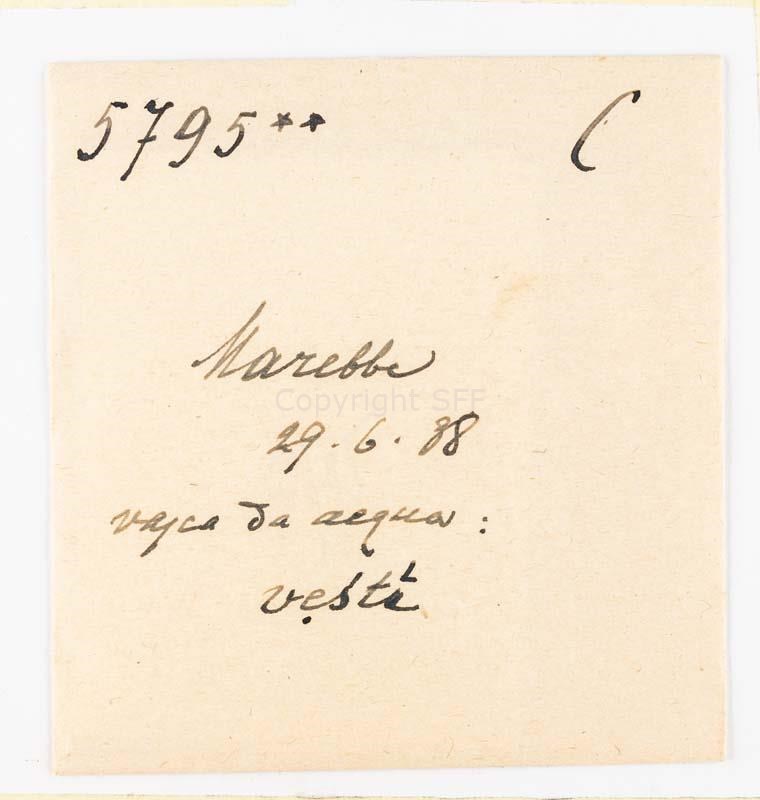 5795** C
Marebbe
Copyright SFF
29.6.38
vasca da acqua: